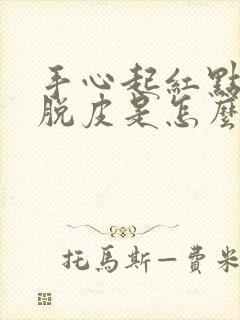 手心起紅點
脫皮是怎麼
托馬斯—費米